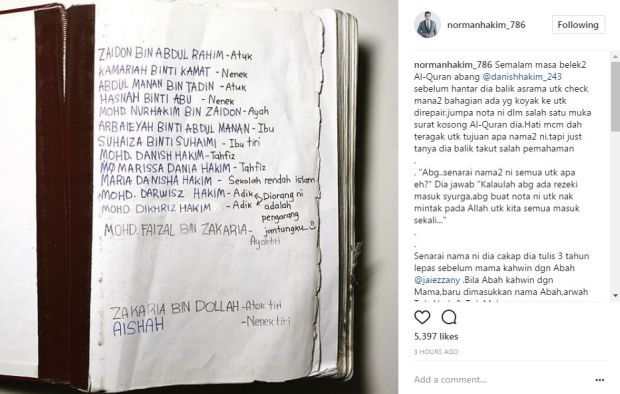 ZAIDON BIN ABDUL RAHIM - Atuk
KAMARIAH BINTI KAMAT - Nenek
ABDUL MANAN BIN TADIN - Atuk
HASNAH BINTI ABU - Nenek
MOHD. NURHAKIM BIN ZAIDON - Ayah
ARBAIEYAH BINTI ABDUL MANAN - Ibu
SUHAIZA BINTI SUHAIMI - Ibu tiri
MOHD. DANISH HAKIM - Tahfiz
MARISSA DANIA HAKIM - Tahfiz
MARIA DANISHA HAKIM - Sekolah rendah islam
MOHD. DARWISZ HAKIM - Adik
MOHD DIKHRIZ HAKIM - Adik
Diorang ni
adalah
pengarang
jantungku...!!
MOHD. FAIZAL BIN ZAKARIA -
Ayah tiri
ZAKARIA BIN DOLLAH - Atok tiri
AISHAH - Nenek tiri
normanhakim_786
Following
normanhakim_786 Semalam masa belek2
Al-Quran abang @danishhakim_243
sebelum hantar dia balik asrama utk check
mana2 bahagian ada yg koyak ke utk
direpair,jumpa nota ni dlm salah satu muka
surat kosong Al-Quran dia.Hati mcm dah
teragak utk tujuan apa nama2 ni,tapi just
tanya dia balik takut salah pemahaman
.
. "Abg..senarai nama2 ni semua utk apa
eh?" Dia jawab "Kalaulah abg ada rezeki
masuk syurga,abg buat nota ni utk nak
mintak pada Allah utk kita semua masuk
sekali..."
.
.
Senarai nama ni dia cakap dia tulis 3 tahun
lepas sebelum mama kahwin dgn Abah
@jaiezzany .Bila Abah kahwin dgn
Mama,baru dimasukkan nama Abah,arwah
5,397 likes
3 HOURS AGO
Add a comment...